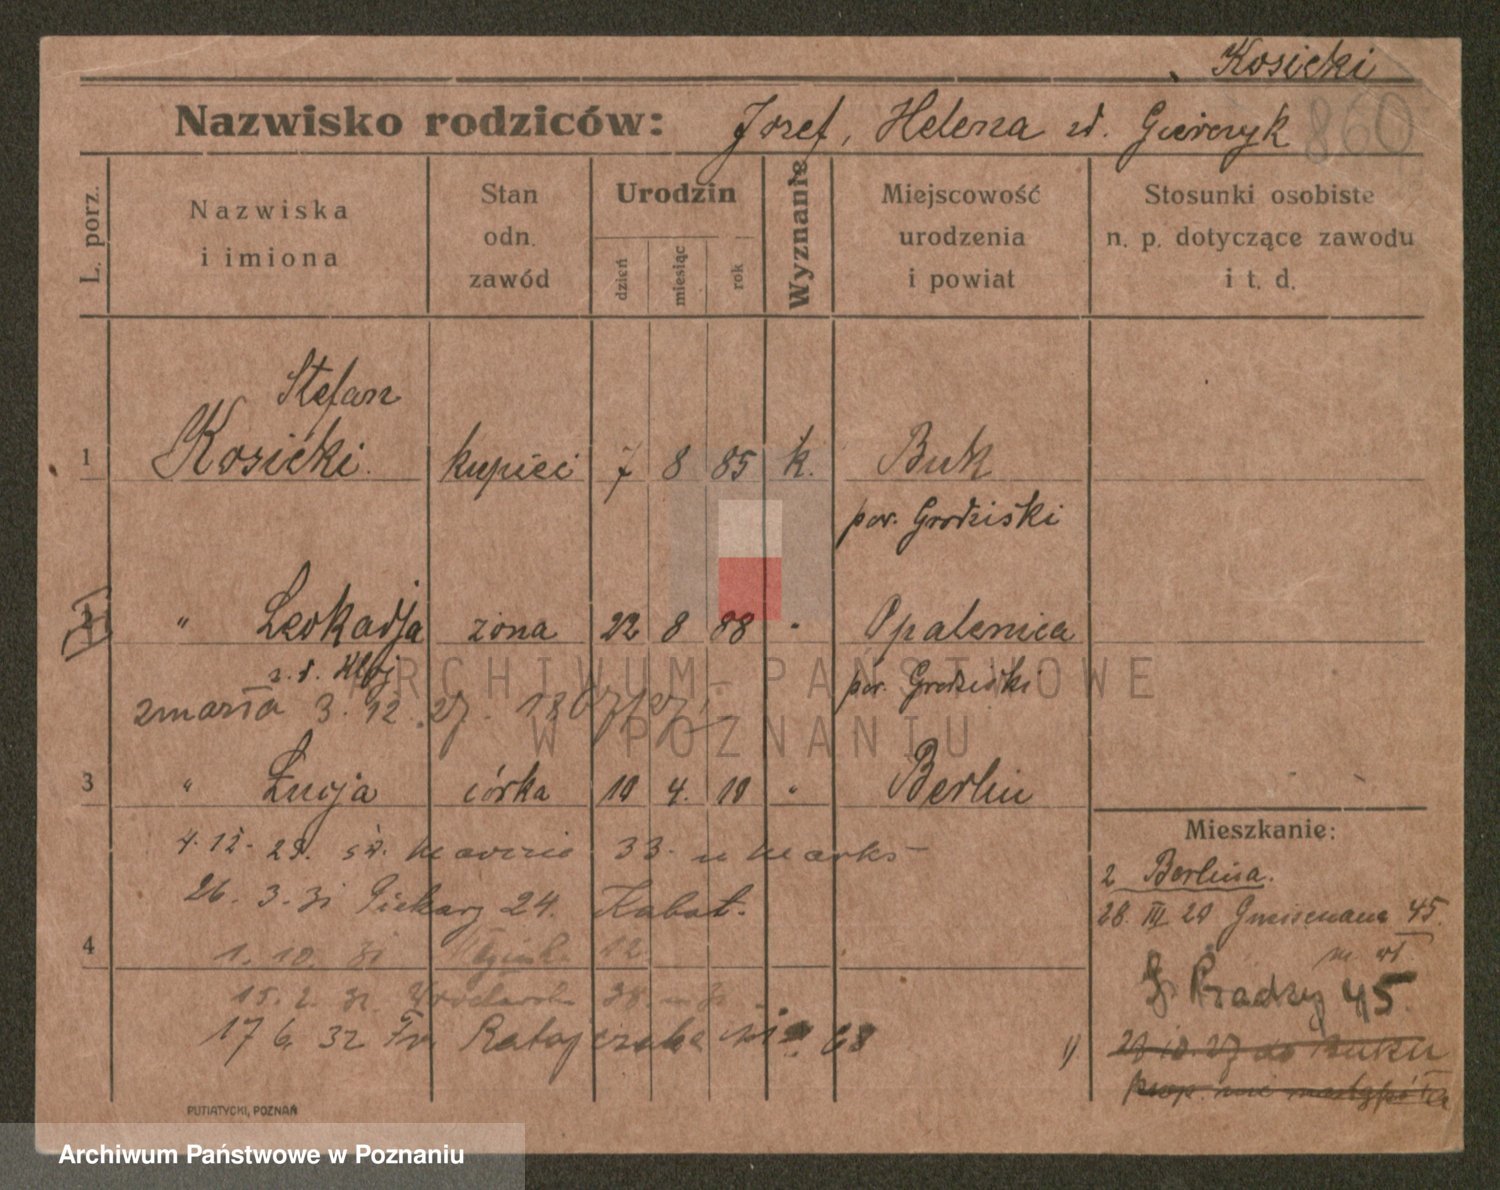 Kosicki
Nazwisko rodziców: Jozef, Helena zd.
860
L. porz.
Nazwiska i imiona
Stan odn. zawód
Urodzin
dzień miesiąc rok
Wyznanie
Miejscowość urodzenia i powiat
Stosunki osobiste n. p. dotyczące zawodu i t. d.
Stefan
1 Kosicki kupiec 7 8 85 k. Buk
pow. Grodziski
2 " Leokadja żona 22 8 88 " Opalenica
z. d. Kloj pow. Grodziski
zmarła 3. 12. 27.
3 " Łucja córka 19 4. 10 " Berlin
Mieszkanie:
z Berlina.
28. III 20 Gneisenaua 45.
Prądzy 45.
4. 12. 29. św. Marcin 33.
26. 3. 31 Piekary 24. Kabat.
4 1. 10. 31 12.
15. 2. 32 38.
17 6. 32 Fr. Ratajczaka 68
29 10. 27 do Buku
PUTIATYCKI, POZNAŃ
ARCHIWUM PAŃSTWOWE
W POZNANIU
Archiwum Państwowe w Poznaniu